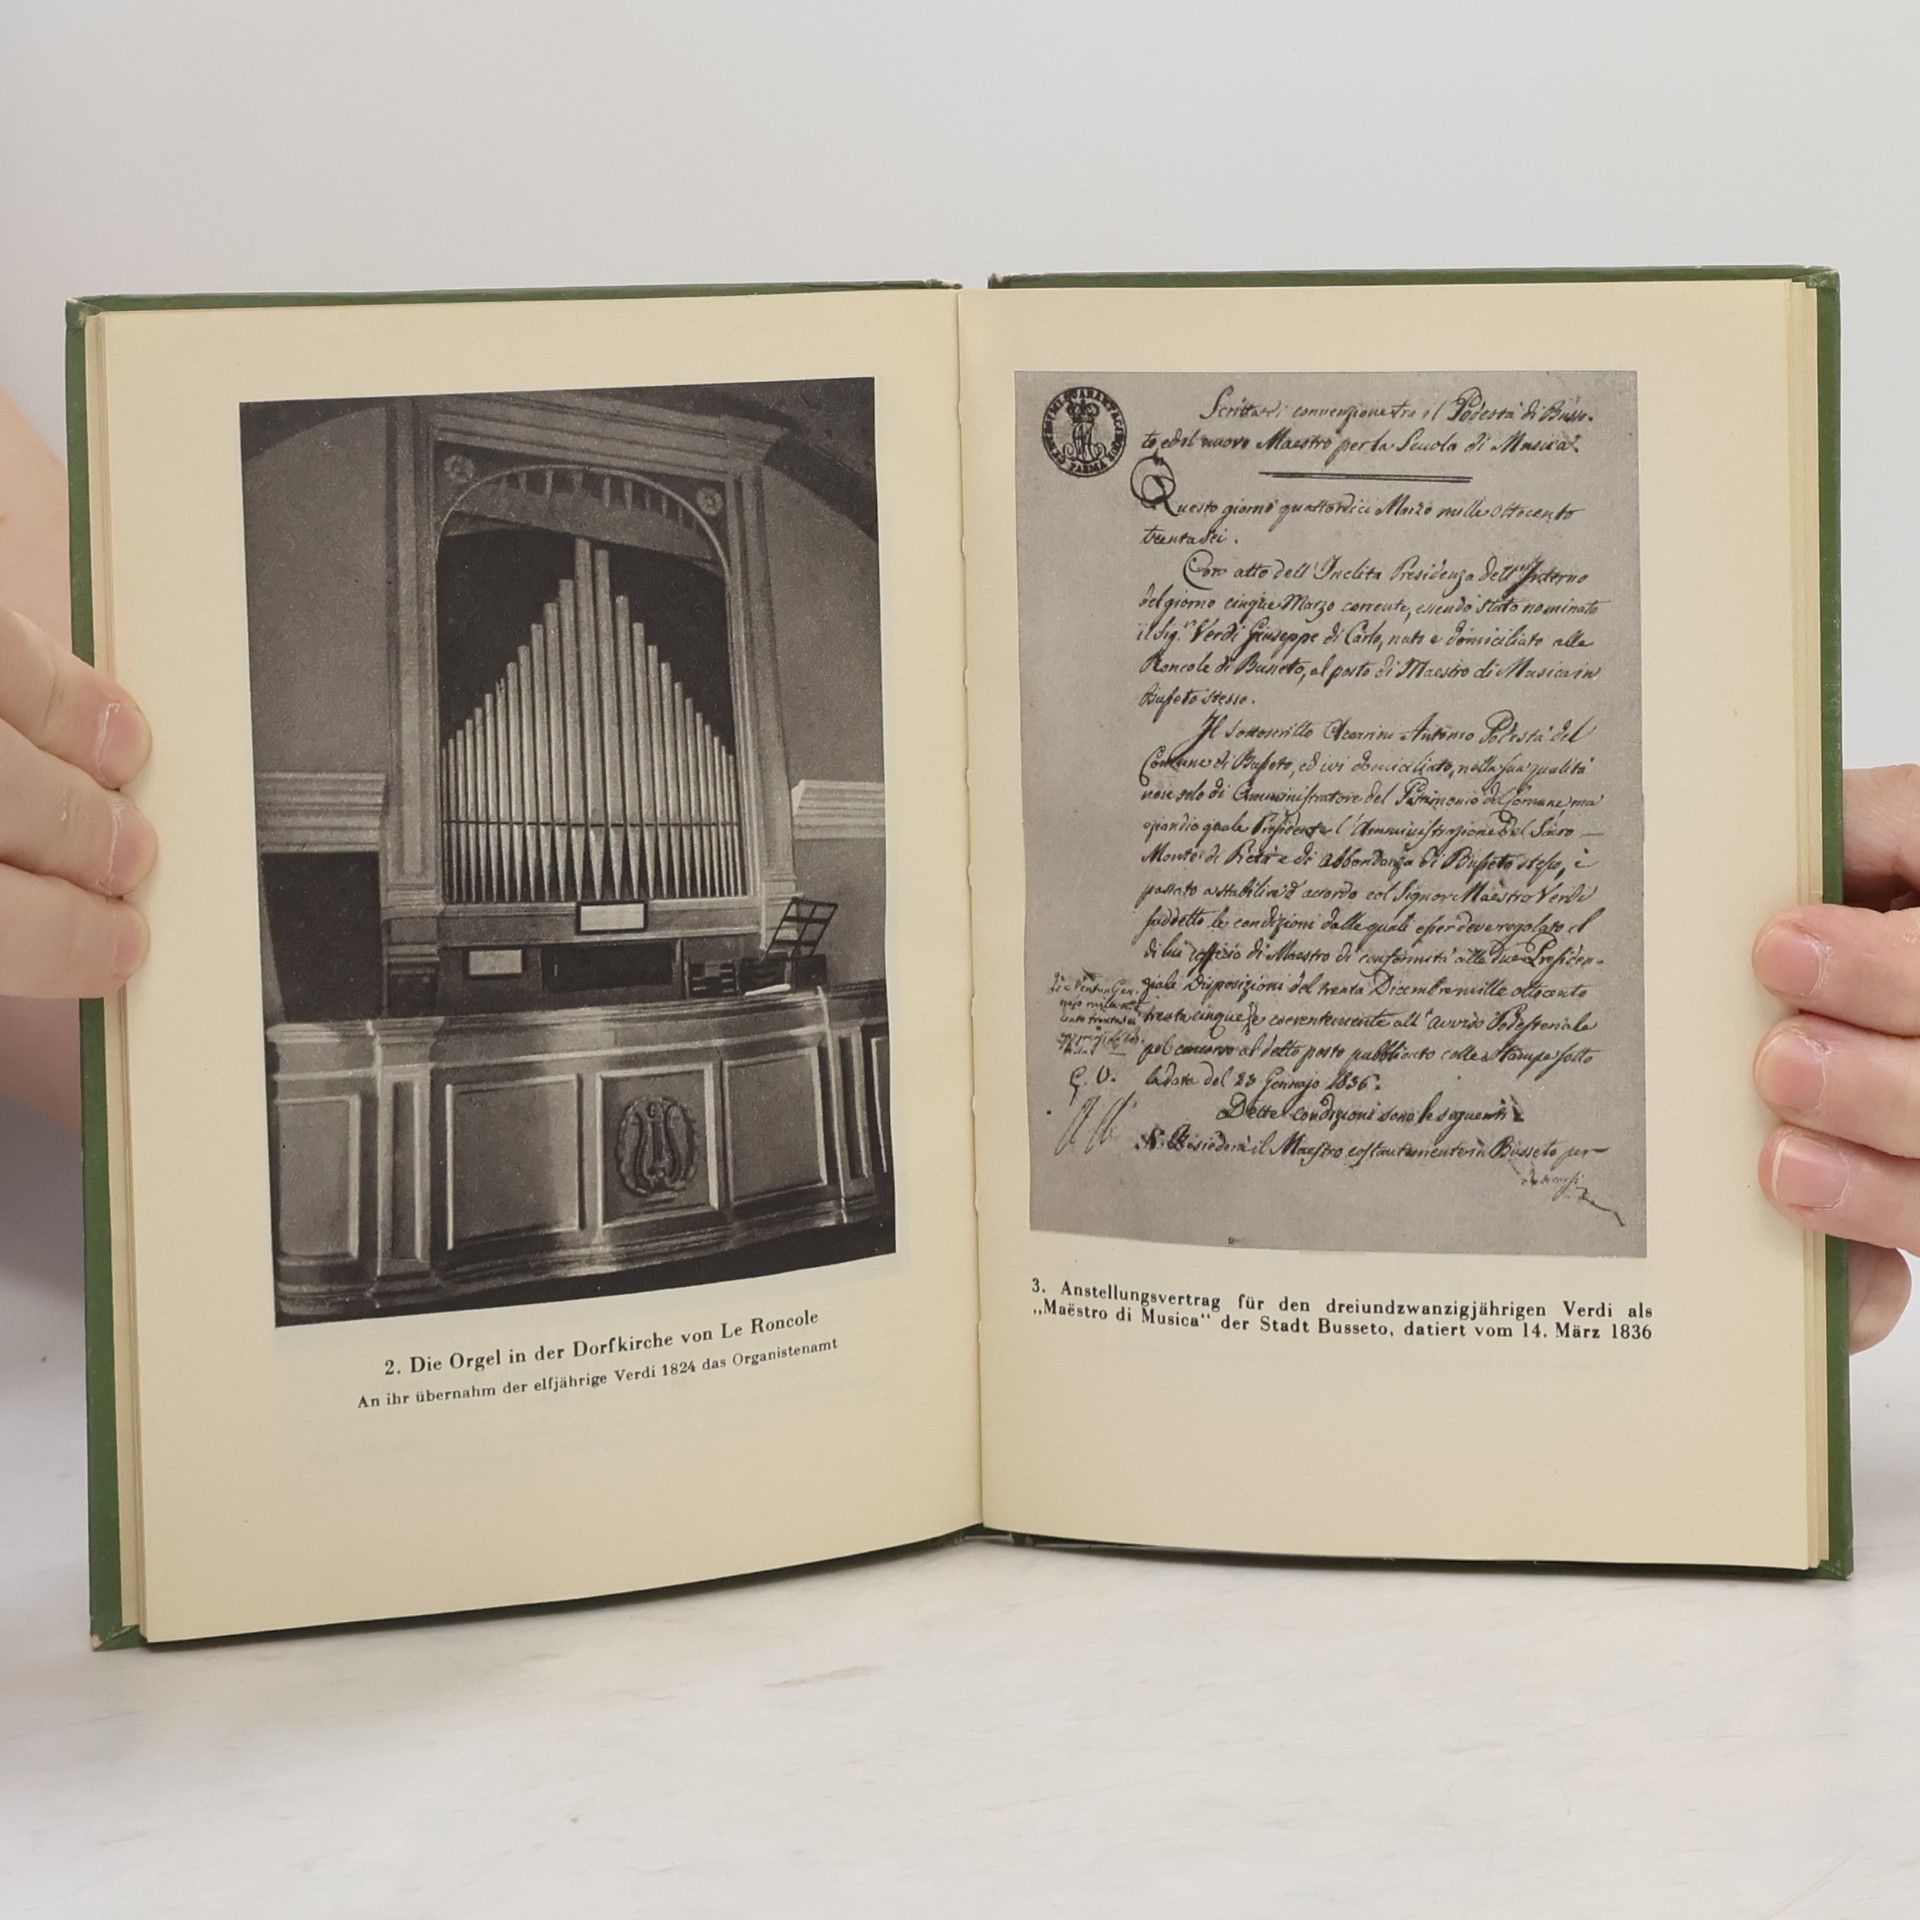 2. Die Orgel in der Dorfkirche von Le Roncole
An ihr übernahm der elfjährige Verdi 1824 das Organistenamt
PARMA
Scritta di convenzione tra il Podestà di Busse-
to, ed il nuovo Maestro per la Scuola di Musica.
Questo giorno quattordici Marzo mille ottocento
trentasei.
Con atto dell'Inclita Presidenza dell'Interno
del giorno cinque Marzo corrente, essendo stato nominato
il Sig.r Verdi Giuseppe di Carlo, nato e domiciliato alle
Roncole di Busseto, al posto di Maestro di Musica in
Busseto stesso.
Il sottoscritto Antonio Podestà del
Comune di Busseto, ed ivi domiciliato, nella sua qualità
non solo di Amministratore del Patrimonio del Comune, ma
quale Presidente l'Amministrazione del Sacro
Monte di Pietà e di abbondanza di Busseto stesso, è
passato a stabilire d'accordo col Signor Maestro Verdi
suddetto le condizioni dalle quali esser deve regolato il
di lui uffizio di Maestro di conformità alle due Presiden-
ziali Disposizioni del trenta Dicembre mille ottocento
trenta cinque, e coerentemente all'avviso Podesteriale
pel concorso al detto posto pubblicato colle stampe sotto
la data del 23 Gennajo 1836.
Dette condizioni sono le seguenti
Risiederà il Maestro costantemente in Busseto per
3. Anstellungsvertrag für den dreiundzwanzigjährigen Verdi als
„Maëstro di Musica“ der Stadt Busseto, datiert vom 14. März 1836